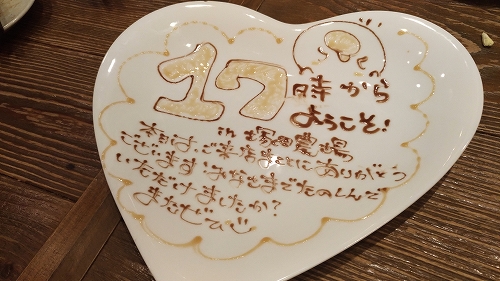 17時から
ようこそ!
in 塚田農場
本日は、ご来店まことにありがとう
ございます はなまるまでたのしんで
いただけましたか?
またぜひ